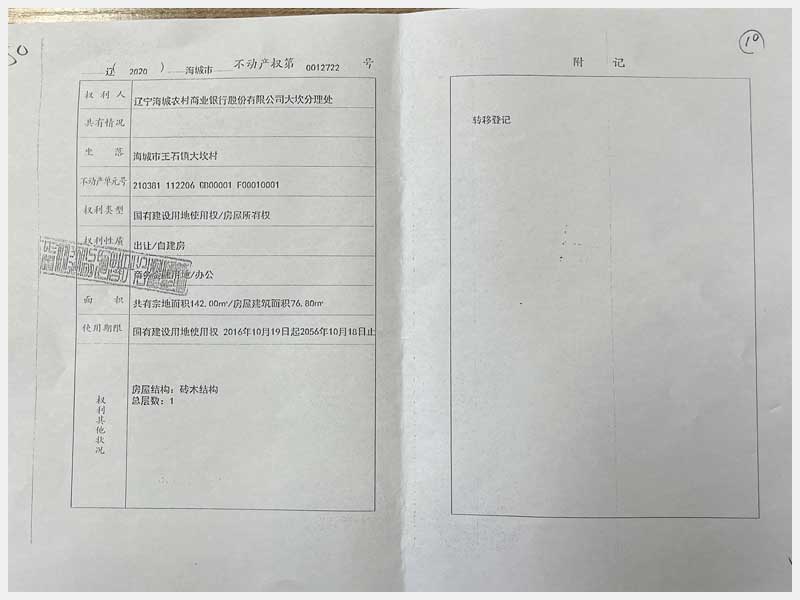 辽（ 2020 ） 海城市 不动产权第 0012722 号
权利人 辽宁海城农村商业银行股份有限公司大坎分理处
共有情况
坐落 海城市王石镇大坎村
不动产单元号 210381 112206 GB00001 F00010001
权利类型 国有建设用地使用权/房屋所有权
权利性质 出让/自建房
商务金融用地/办公
面积 共有宗地面积142.00㎡/房屋建筑面积76.80㎡
使用期限 国有建设用地使用权 2016年10月19日起2056年10月18日止
权利其他状况
房屋结构：砖木结构
总层数：1
10
附记
转移登记